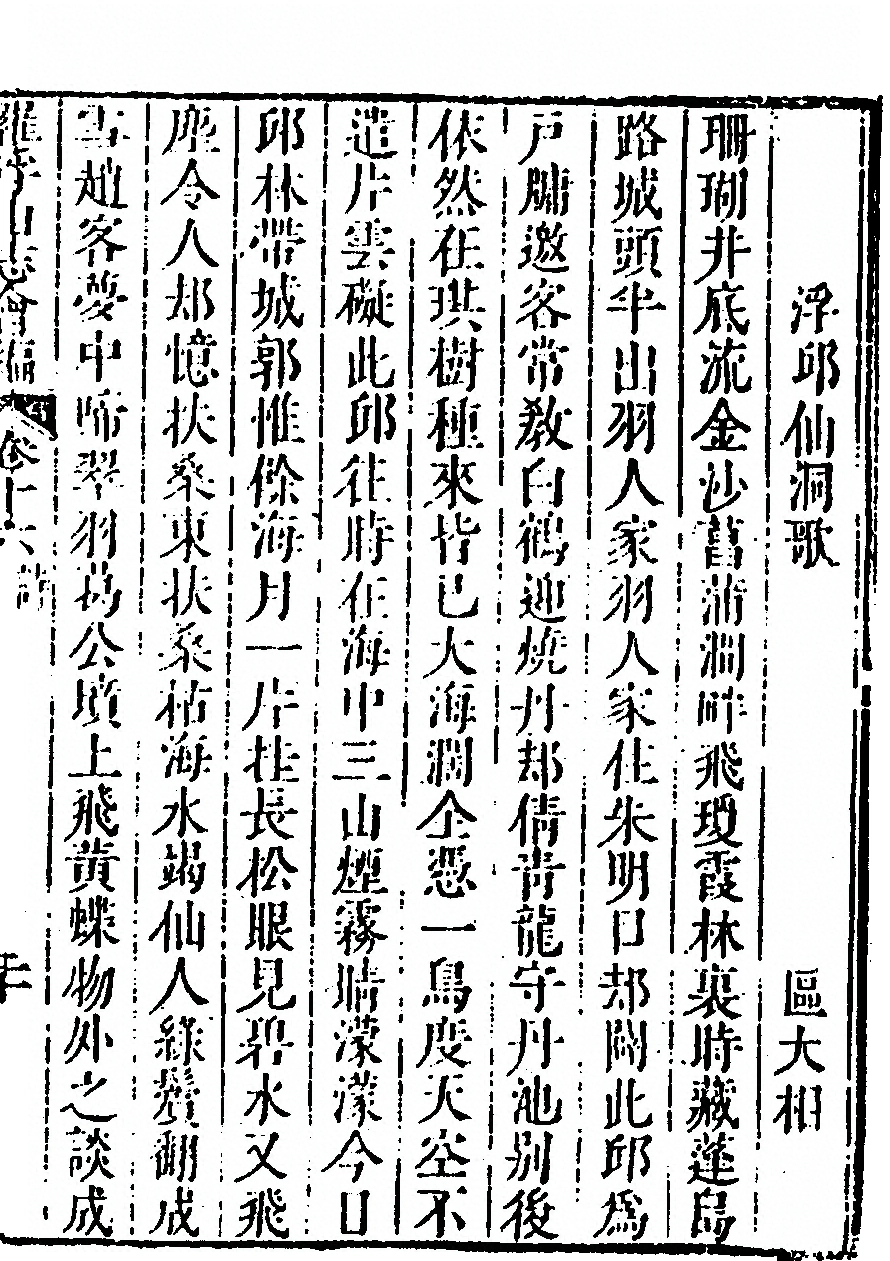 浮邱仙洞歌　區大相
珊瑚井底流金沙菖蒲澗畔飛瓊霞林裏時藏蓬島
路城頭半出羽人家羽人家住朱明日却闢此邱為
戸牗邀客常教白鶴迎燒丹却倩青龍守丹池别後
依然在琪樹種來皆已大海濶全憑一鳥度天空不
遣片雲礙此邱往時在海中三山煙霧晴濛濛今日
邱林帶城郭惟餘海月一片挂長松眼見碧水又飛
塵令人却憶扶桑東扶桑枯海水竭仙人綠鬢翻成
雪趙客夢中啼翠羽葛公墳上飛黄蝶物外之談成
羅浮山志會編　卷十六　詩